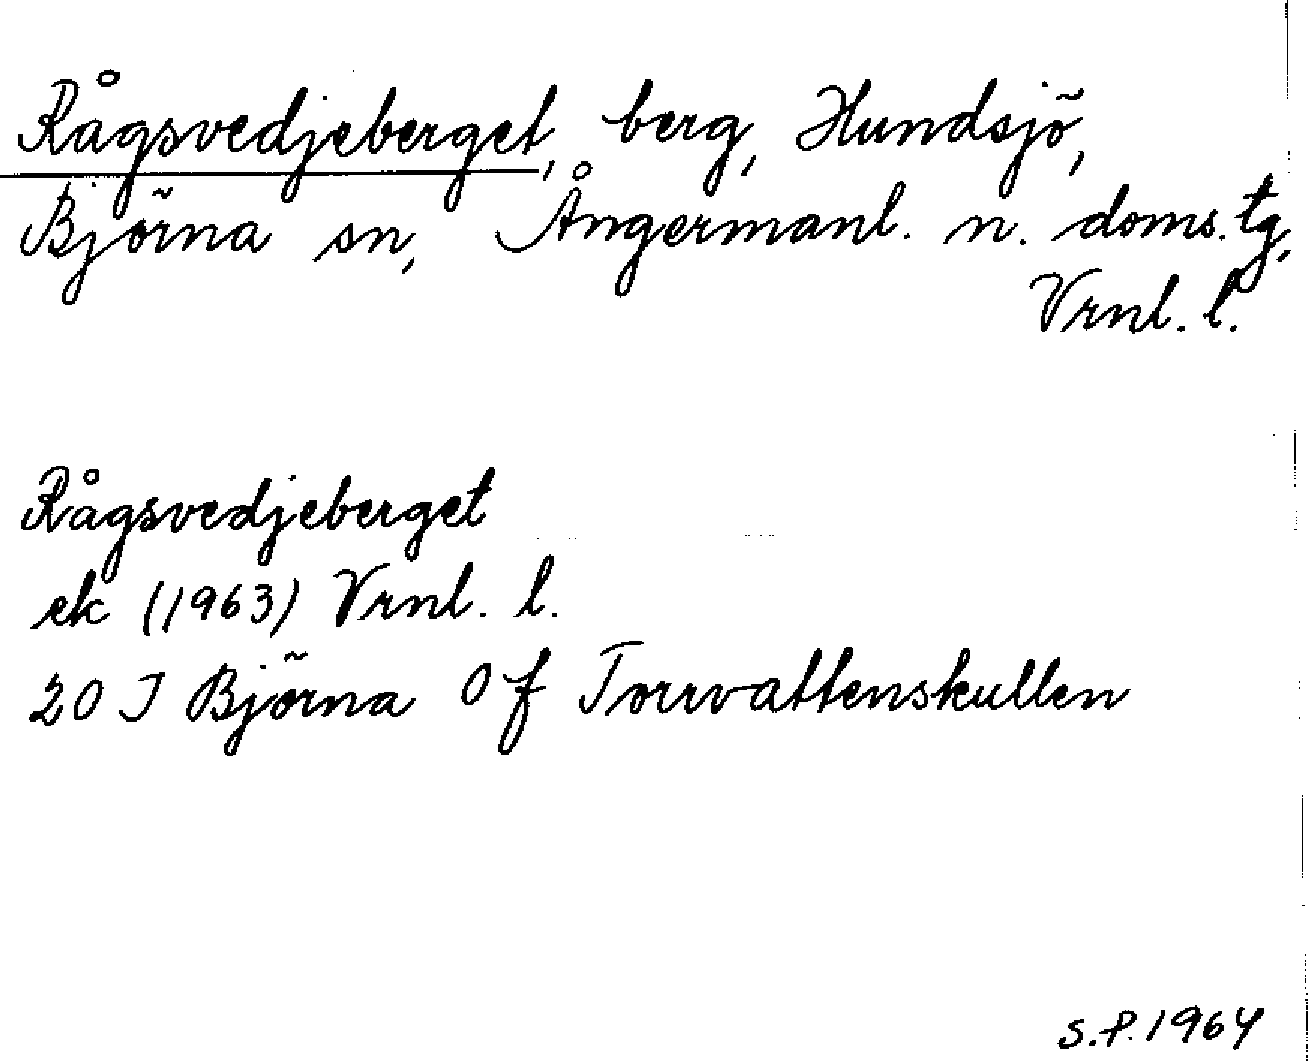 Rågsvedjeberget, berg, Hundsjö,
Björna sn, Ångermanl. n. doms. tg,
Vrnl. l.
Rågsvedjeberget
ek (1963) Vrnl. l.
20 I Björna 0 f Torrvattenskullen
S.P. 1964